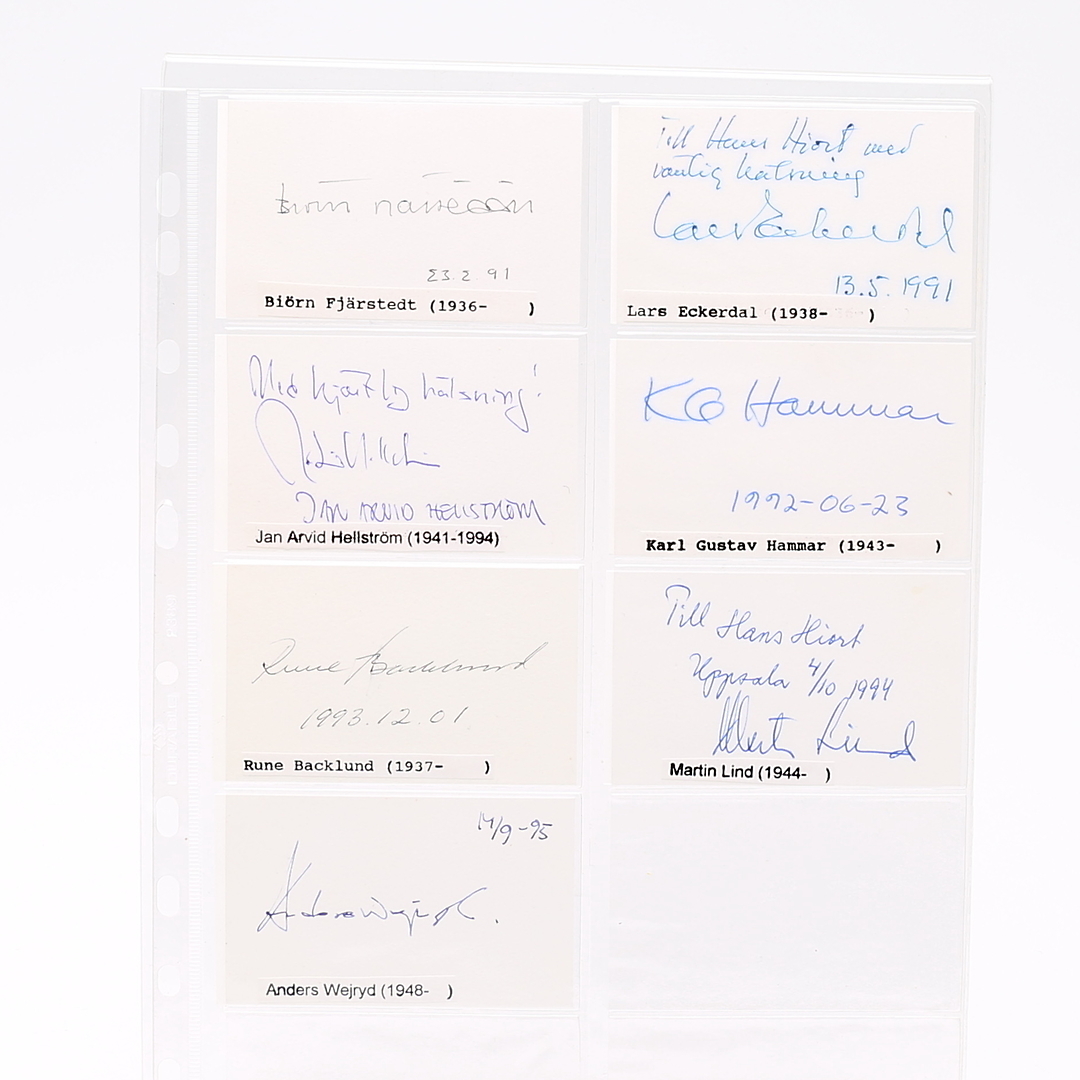 23.2.91
Biörn Fjärstedt (1936-    )
Till Hans Hiort med
vänlig hälsning
Lars Eckerdal
13.5.1991
Lars Eckerdal (1938-    )
Med hjärtlig hälsning!
JAN ARVID HELLSTRÖM
Jan Arvid Hellström (1941-1994)
KG Hammar
1992-06-23
Karl Gustav Hammar (1943-    )
Rune Backlund
1993.12.01
Rune Backlund (1937-    )
Till Hans Hiort
Uppsala 4/10 1994
Martin Lind
Martin Lind (1944-    )
14/9-95
Anders Wejryd
Anders Wejryd (1948-    )